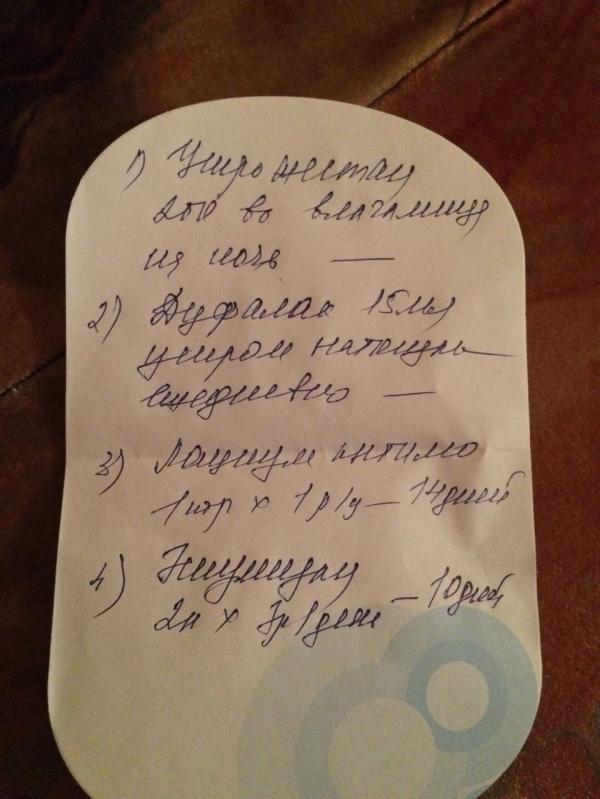 1) Утрожестан
200 во влагалище
на ночь —
2) Дуфалак 15мл
утром натощак
ежедневно —
3) Лациум
1 x 1 р/д — 14 дней
4)
2к x 3р/день — 10 дней